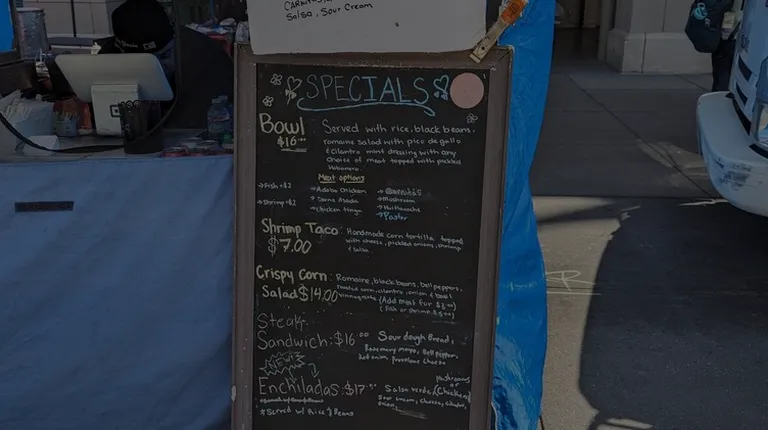 CARNITAS,
Salsa, Sour Cream
SPECIALS
Bowl : Served with rice, black beans,
$16.00 romaine salad with pico de gallo
& cilantro mint dressing with any
choice of meat topped with pickled
Habanero
Meat options
→Fish +$2 →Adobo Chicken →Carnitas
→Shrimp +$2 →Carne Asada →Mushroom
→Chicken tinga →Huitlacoche
→Pastor
Shrimp Taco: Handmade corn tortilla topped
$7.00 with cheese, pickled onions, shrimp
& salsa
Crispy Corn : Romaine, black beans, bell peppers,
Salad $14.00 roasted corn, cilantro, onion & basil
vinaigrette (Add meat for $3.00)
(Fish or shrimp
Steak
Sandwich: $16.00 Sourdough Bread,
Rosemary mayo, Bell Pepper,
Red onion, Provolone Cheese
NEW!
Enchiladas: $17.00 Salsa Verde, (Chicken)
mushrooms
or
sour cream, cheese, cilantro,
onion
*Served w/ Rice & Beans